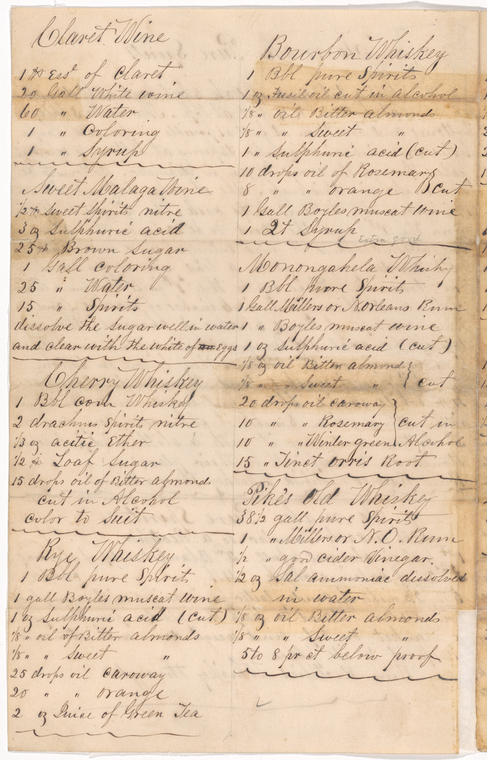 Claret Wine
1 lb Ess. of Claret
20 Gall White wine
60 " Water
1 " Coloring
1 " Syrup
Sweet Malaga Wine
1/2 lb Sweet Spirits nitre
3 oz Sulphuric acid
25 lb Brown Sugar
1 Gall coloring
25 " Water
15 " Spirits
dissolve the sugar well in water
and clear with the white of Eggs
Cherry Whiskey
1 Bbl corn Whiskey
2 drachms Spirits nitre
1/3 oz acitic Ether
1/2 lb Loaf Sugar
15 drops oil of Bitter almonds
cut in Alcohol
color to Suit
Rye Whiskey
1 Bbl pure Spirit
1 gall Boyles muscat wine
1 oz Sulphuric acid (cut)
1/8 " oil of Bitter almonds
1/8 " " sweet "
25 drops oil caroway
20 " " orange
2 oz Juice of Green Tea
Bourbon Whiskey
1 Bbl pure Spirits
1 oz Fusil oil cut in alcohol
1/8 " oil Bitter almond
1/8 " " Sweet "
1 " Sulphuric acid (cut)
10 drops oil of Rosemary
8 " " orange cut
1 Gall Boyles muscat wine
1 Qt Syrup
Monongahela Whisky
1 Bbl pure Spirit
1 Gall Millers or N.orleans Rum
1 " Boyles muscat wine
1 oz Sulphuric acid (cut)
1/8 oz oil Bitter almond
1/8 " " Sweet " cut
20 drops oil caroway
10 " " Rosemary cut in
10 " " Winter green Alcohol
15 " Tinct orris Root
Pikes old Whiskey
38 1/2 gall pure Spirits
1 " Millers or N.O. Rum
1/2 " good cider Vinegar.
1/2 oz Sal ammoniac dissolved
in water
1/8 oz oil Bitter almonds
1/8 " " Sweet "
5 to 8 pr ct below proof